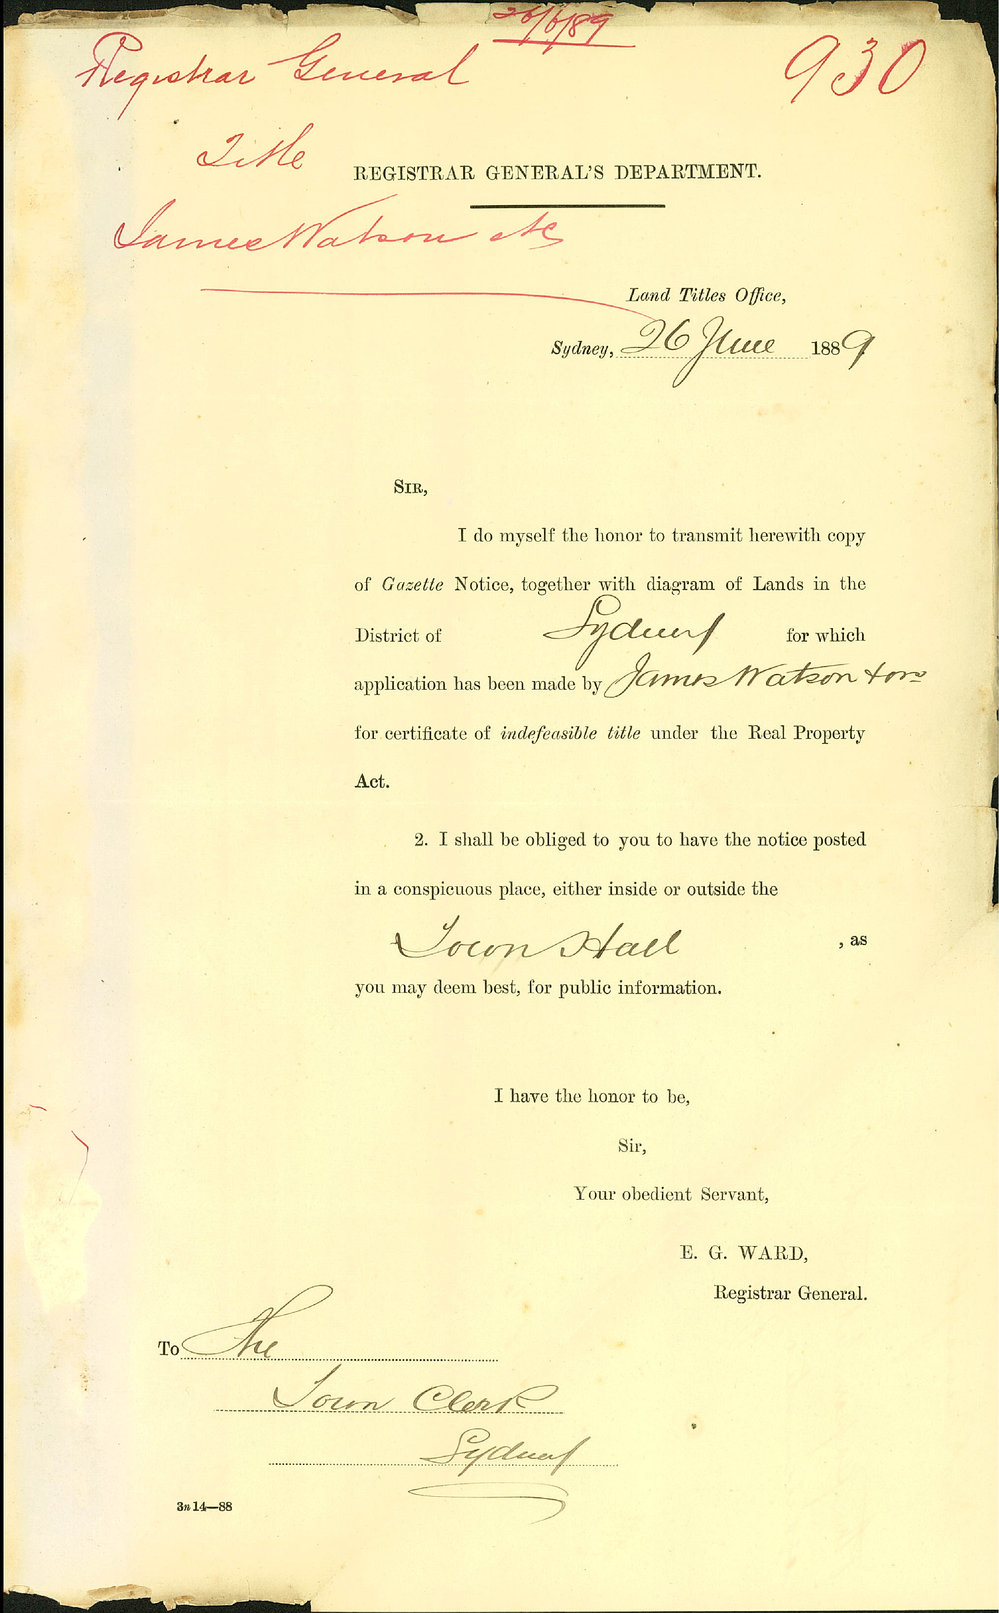 26/6/89
Registrar General
930
Title
REGISTRAR GENERAL'S DEPARTMENT.
James Watson &c
Land Titles Office,
Sydney, 26 June 1889
SIR,
I do myself the honor to transmit herewith copy
of Gazette Notice, together with diagram of Lands in the
District of Sydney for which
application has been made by James Watson & ors
for certificate of indefeasible title under the Real Property
Act.
2. I shall be obliged to you to have the notice posted
in a conspicuous place, either inside or outside the
Town Hall , as
you may deem best, for public information.
I have the honor to be,
Sir,
Your obedient Servant,
E. G. WARD,
Registrar General.
To The
Town Clerk
Sydney
3n 14—88